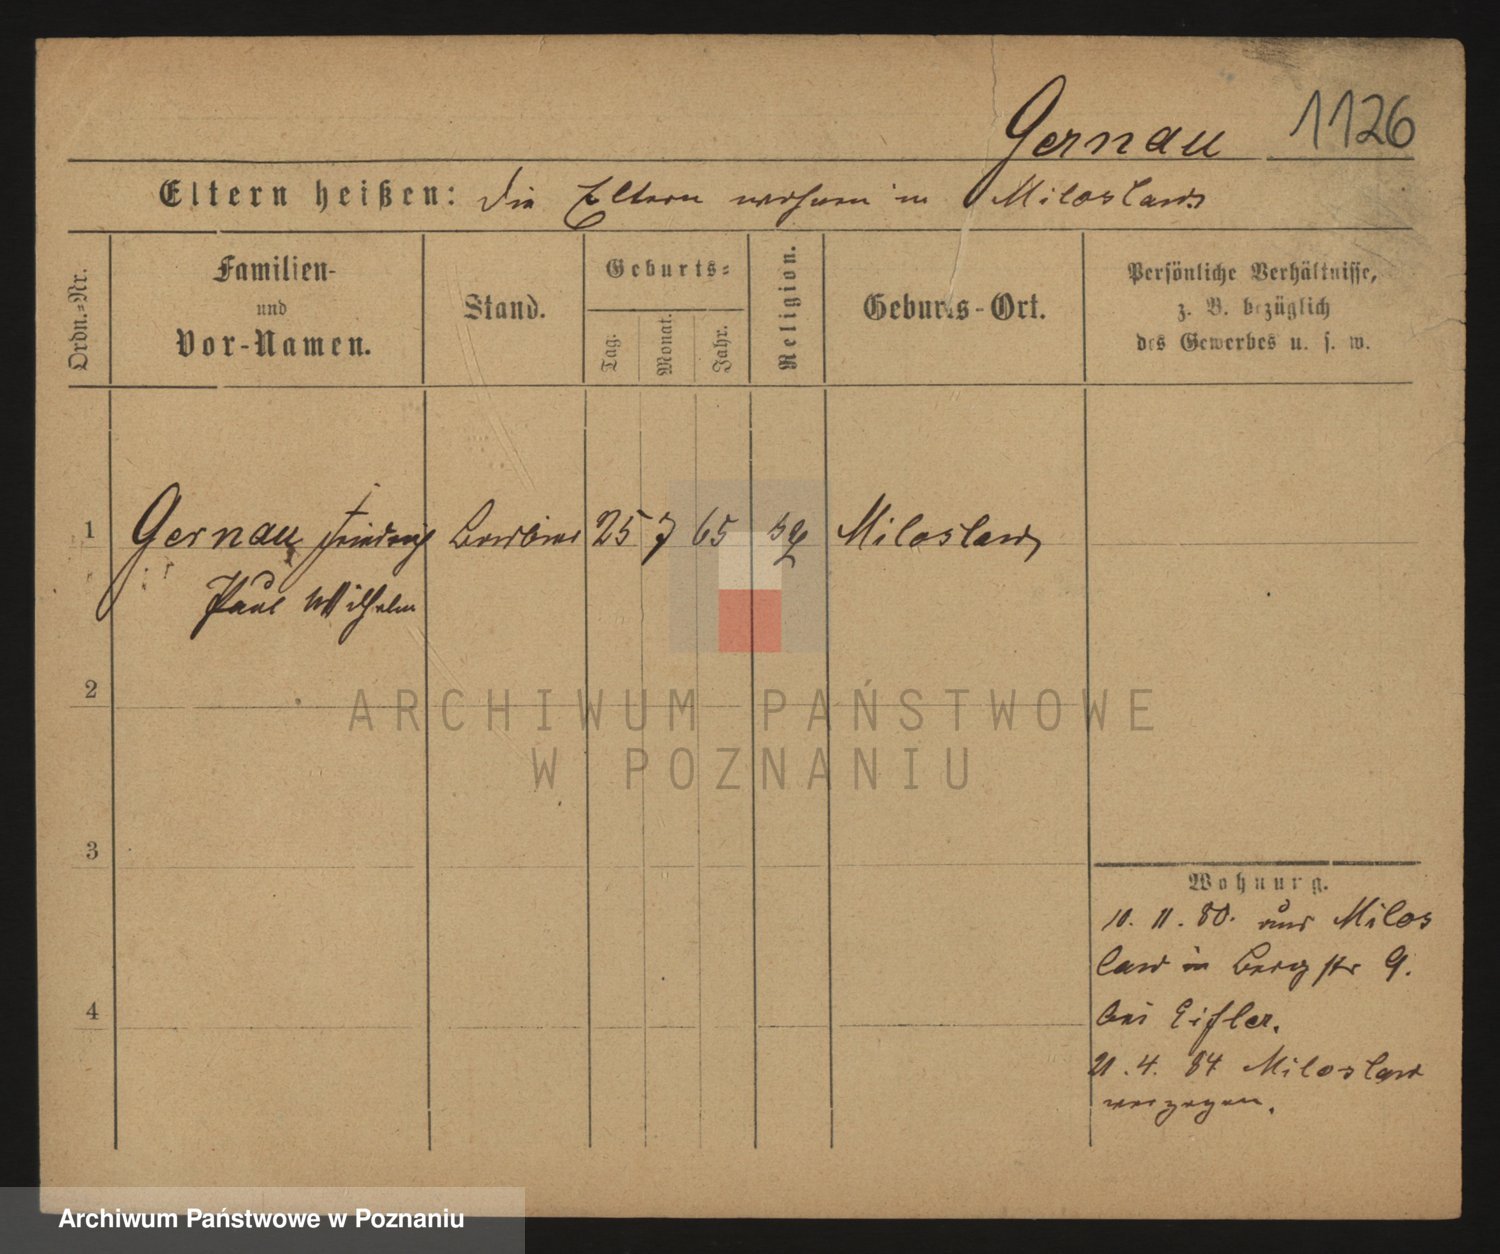 Gernau 1126
Eltern heißen: Die Eltern wohnen in Miloslaw.
Ordn.=Nr.
Familien-
und
Vor-Namen.
Stand.
Geburts=
Tag.
Monat.
Jahr.
Religion.
Geburts-Ort.
Persönliche Verhältnisse,
z. B. bezüglich
des Gewerbes u. s. w.
1 Gernau Friedrich Barbier 25 7 65 Miloslaw
Paul Wilhelm
2
ARCHIWUM PAŃSTWOWE
W POZNANIU
3
Wohnung.
10. 11. 80. aus Milos
law in Bergstr 9.
4
bei Eifler.
21. 4. 84 Miloslaw
verzogen.
Archiwum Państwowe w Poznaniu